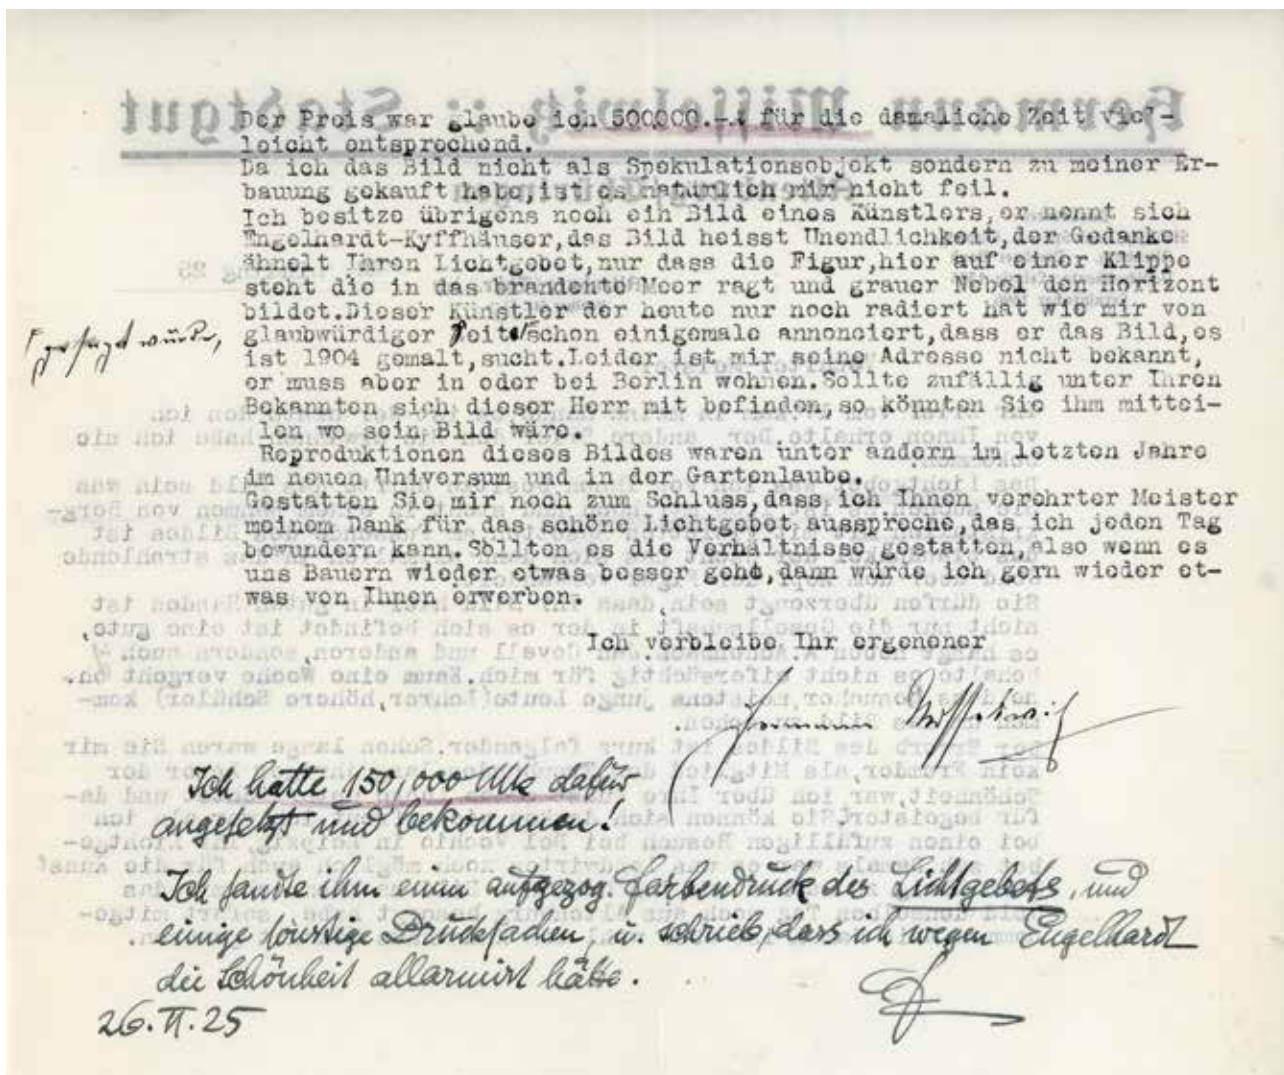 Der Preis war glaube ich 500000.-. für die damaliche Zeit viel-
leicht entsprechend.
Da ich das Bild nicht als Spekulationsobjekt sondern zu meiner Er-
bauung gekauft habe,ist es natürlich mir nicht feil.
Ich besitze übrigens noch ein Bild eines Künstlers,er nennt sich
Engelhardt-Kyffhäuser,das Bild heisst Unendlichkeit,der Gedanke
ähnelt Ihren Lichtgebet,nur dass die Figur,hier auf einer Klippe
steht die in das brandente Meer ragt und grauer Nebel den Horizont
bildet.Dieser Künstler der heute nur noch radiert hat wie mir von
glaubwürdiger Seite schon einigemale annonciert,dass er das Bild,es
gesagt wurde,
ist 1904 gemalt,sucht.Leider ist mir seine Adresse nicht bekannt,
er muss aber in oder bei Berlin wohnen.Sollte zufällig unter Ihren
Bekannten sich dieser Herr mit befinden,so könnten Sie ihm mittei-
len wo sein Bild wäre.
Reproduktionen dieses Bildes waren unter andern im letzten Jahre
im neuen Universum und in der Gartenlaube.
Gestatten Sie mir noch zum Schluss,dass ich Ihnen verehrter Meister
meinem Dank für das schöne Lichtgebet ausspreche,das ich jeden Tag
bewundern kann.Sollten es die Verhältnisse gestatten,also wenn es
uns Bauern wieder etwas besser geht,dann würde ich gern wieder et-
was von Ihnen erwerben.
Ich verbleibe Ihr ergebener
Hermann Misselwitz
Ich hatte 150,000 Mk dafür
angesetzt und bekommen!
Ich sandte ihm einen aufgezog. Farbendruck des Lichtgebets, und
einige sonstige Drucksachen, u. schrieb, dass ich wegen Engelhardt
die Schönheit allarmirt hätte.
26.II.25